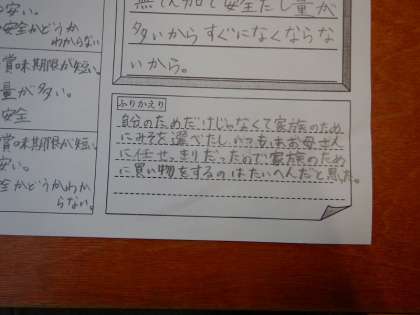 安い。
安全かどうか
わからない
賞味期限が短い。
量が多い。
安全
賞味期限が短い
安い。
安全かどうかわか
らない。
無てん加で安全だし量が
多いからすぐになくならな
いから。
ふりかえり
自分のためだけじゃなくて家族のため
にみそを選べたし、いつもはお母さん
に任せっきりだったので、家族のため
に買い物をするのはたいへんだと思った。